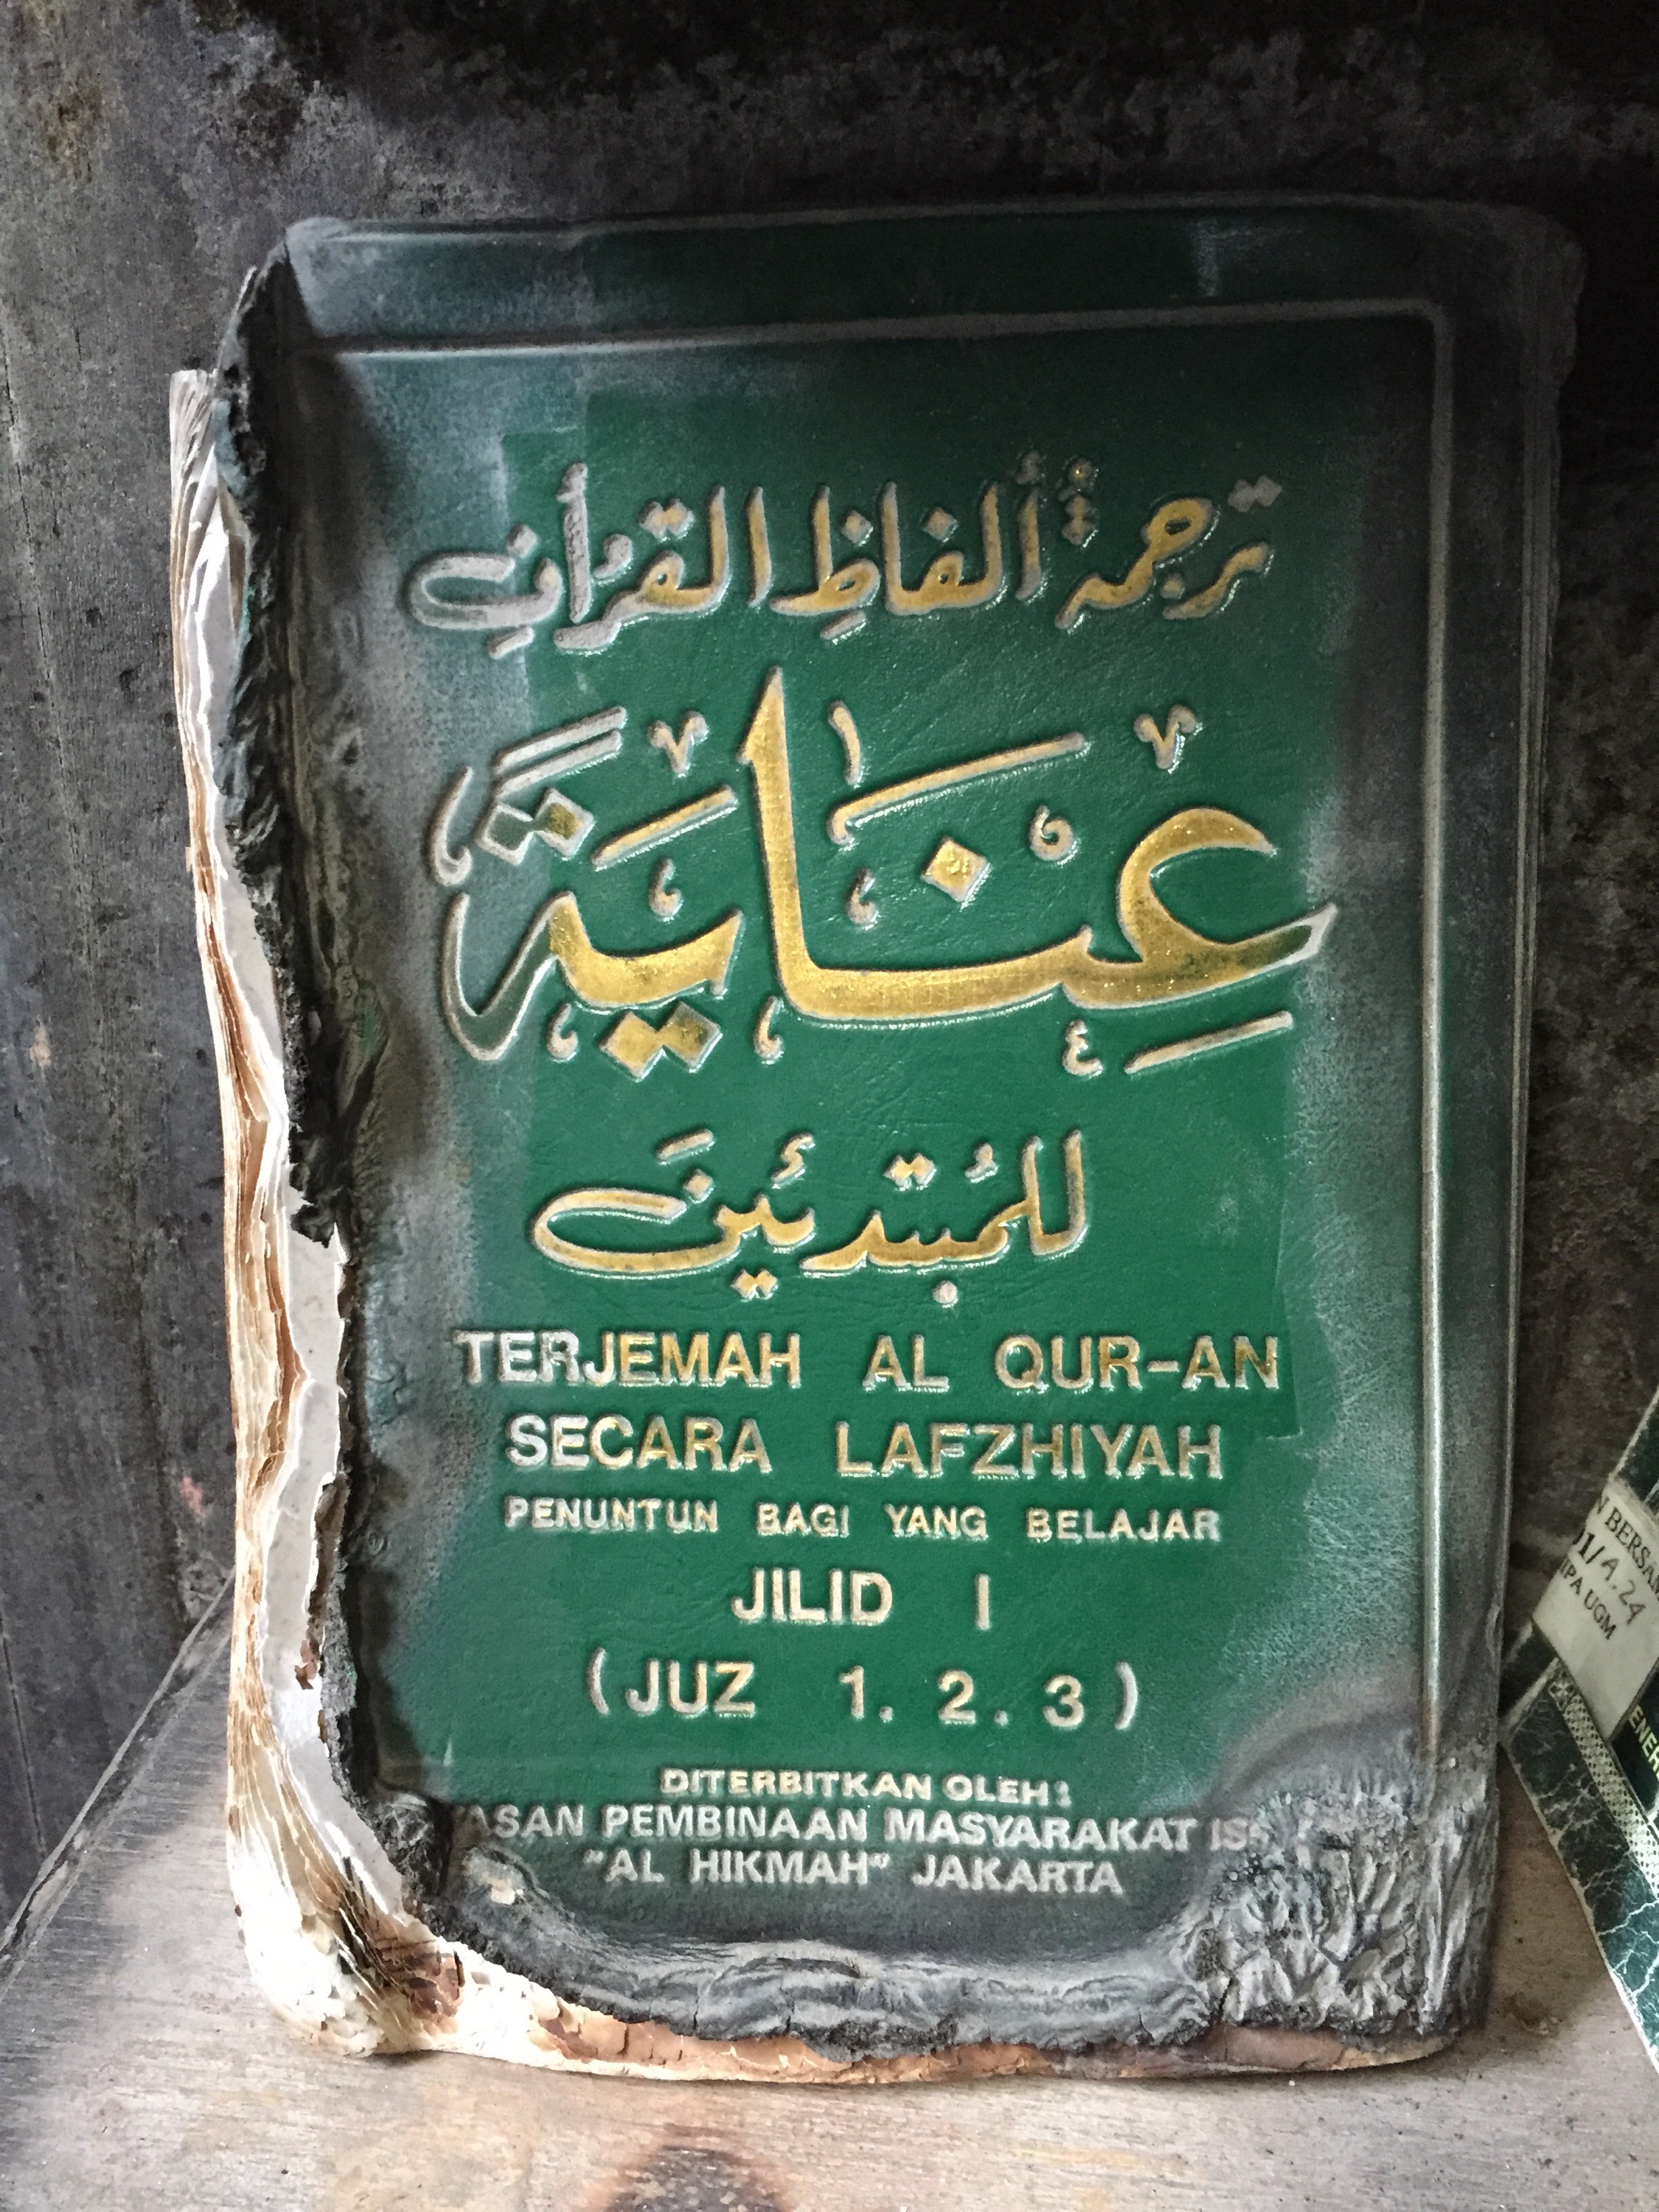 ترجمة ألفاظ القرأن
عِنَايَةً
للمُبتدئينَ
TERJEMAH AL QUR-AN
SECARA LAFZHIYAH
PENUNTUN BAGI YANG BELAJAR
JILID I
(JUZ 1. 2. 3)
DITERBITKAN OLEH:
ASAN PEMBINAAN MASYARAKAT IS
"AL HIKMAH" JAKARTA
BERSAM
01/A.24
IPA UGM
ENER